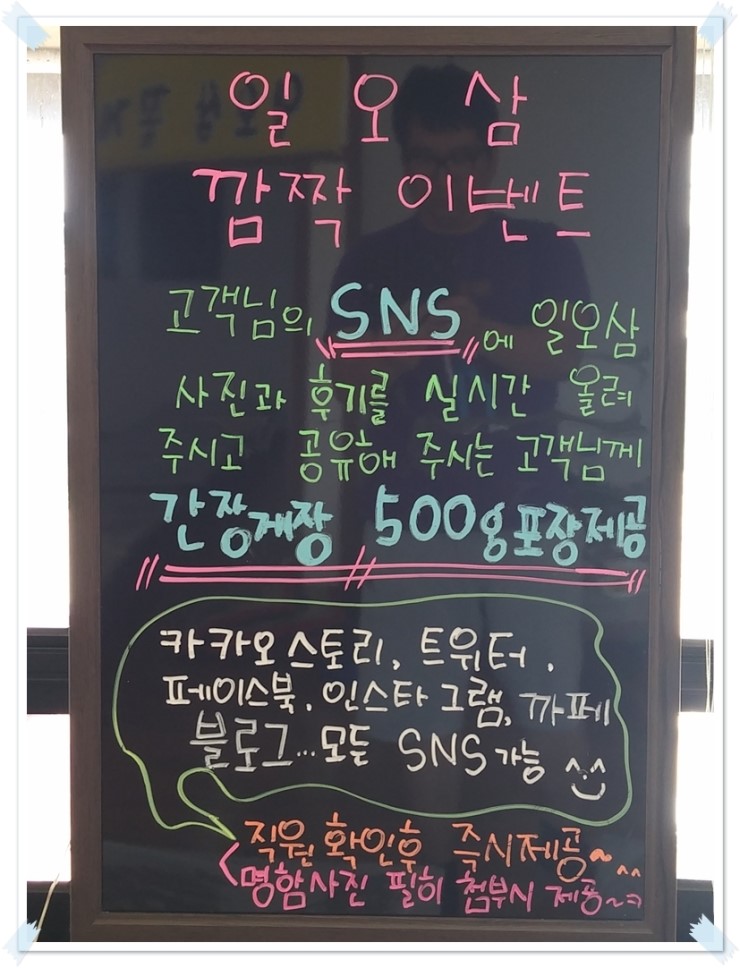 일오삼
깜짝 이벤트
고객님의 SNS에 일오삼
사진과 후기를 실시간 올려
주시고 공유해 주시는 고객님께
간장게장 500g 포장제공
카카오스토리, 트위터,
페이스북, 인스타그램, 까페
블로그... 모든 SNS 가능 ^^
직원확인후 즉시제공~ ^^
명함사진 필히 첨부시 제공~